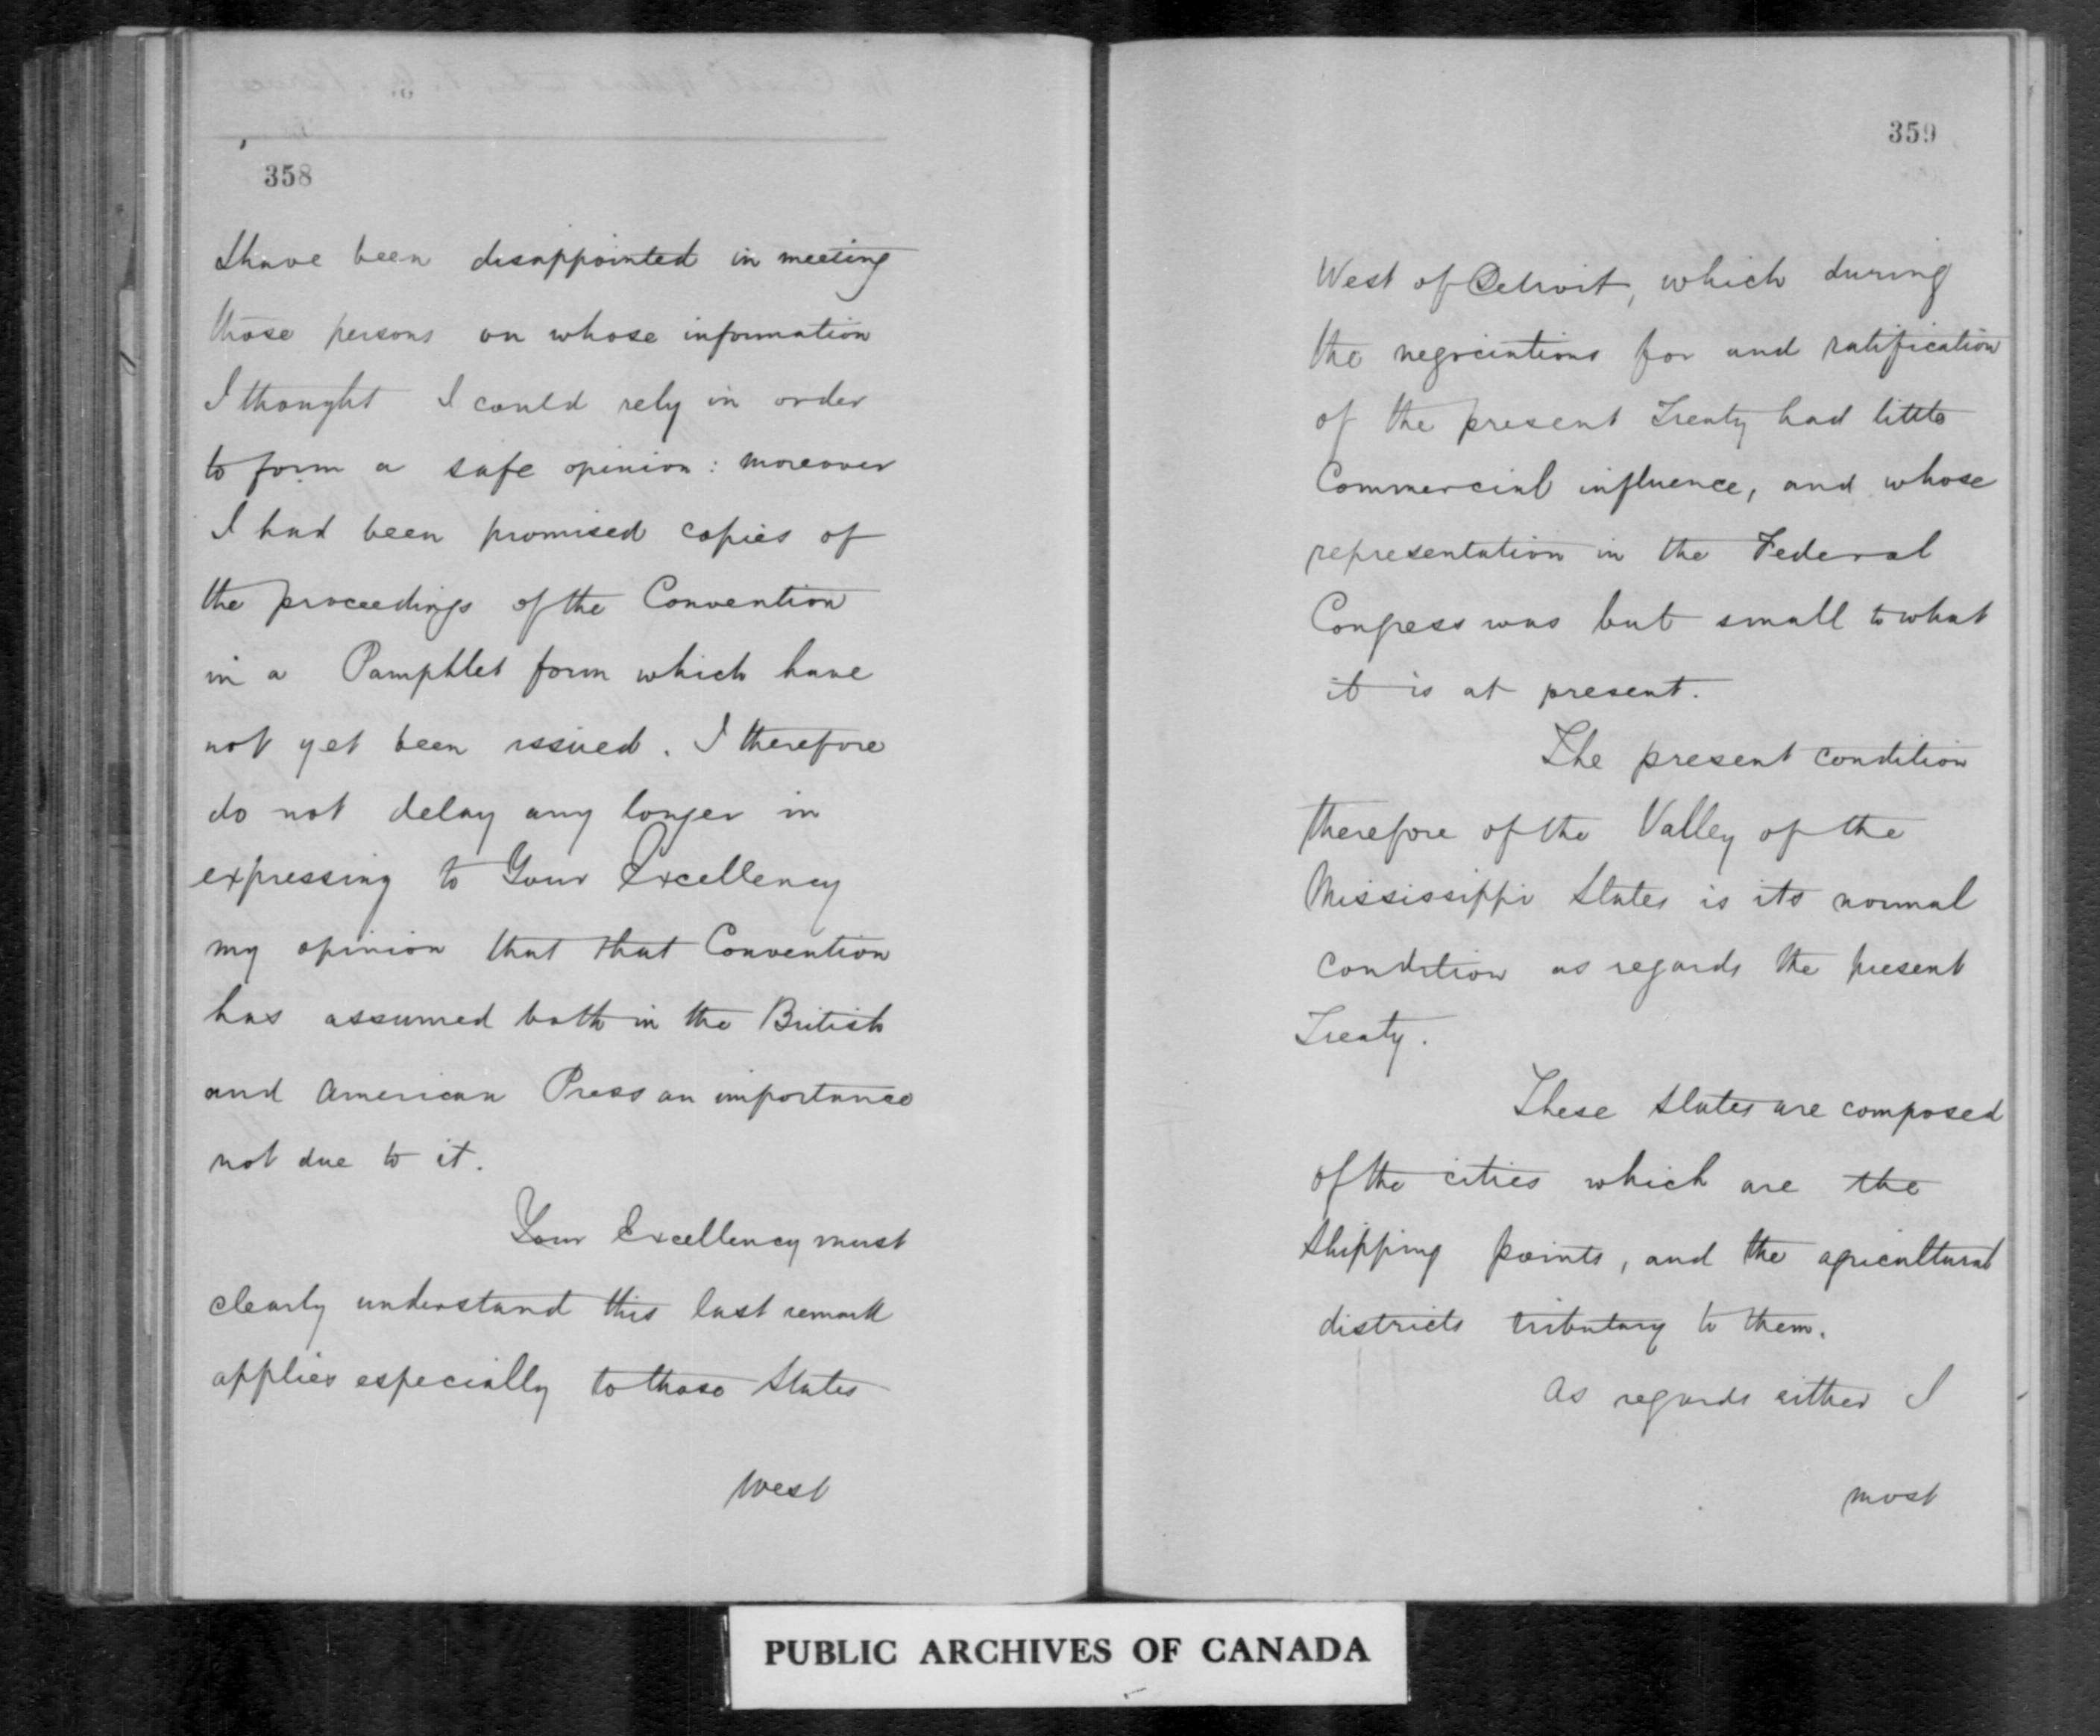 358
I have been disappointed in meeting
those persons on whose information
I thought I could rely in order
to form a safe opinion: moreover
I had been promised copies of
the proceedings of the Convention
in a Pamphlet form which have
not yet been issued. I therefore
do not delay any longer in
expressing to Your Excellency
my opinion that that Convention
has assumed both in the British
and American Press an importance
not due to it.
Your Excellency must
clearly understand this last remark
applies especially to those States
West
359
West of Detroit, which during
the negociations for and ratification
of the present Treaty had little
Commercial influence, and whose
representation in the Federal
Congress was but small to what
it is at present.
The present condition
therefore of the Valley of the
Mississippi States is its normal
condition as regards the present
Treaty.
These States are composed
of the cities which are the
shipping points, and the agricultural
districts tributary to them.
As regards either I
most
PUBLIC ARCHIVES OF CANADA